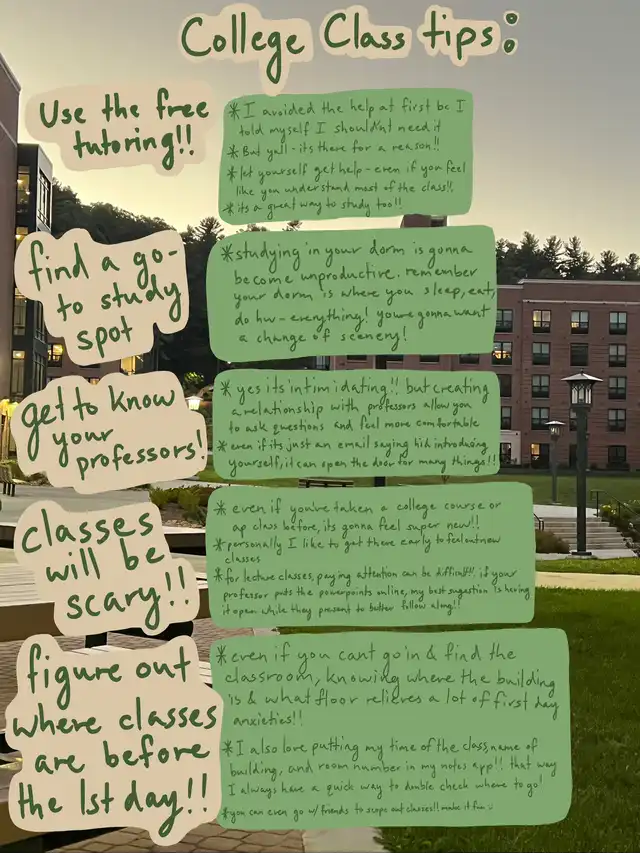 College Class tips:
Use the free
tutoring!!
* I avoided the help at first bc I
told myself I shouldn't need it
* But yall - its there for a reason!!
* let yourself get help - even if you feel
like you understand most of the class!!
* its a great way to study too!!
find a go-
to study
spot
* studying in your dorm is gonna
become unproductive. remember
your dorm is where you sleep, eat,
do hw - everything! youre gonna want
a change of scenery!
get to know
your
professors!
* yes its intimidating!! but creating
a relationship with professors allow you
to ask questions and feel more comfortable
* even if its just an email saying hi & introducing
yourself, it can open the door for many things!!
classes
will be
scary!!
* even if you've taken a college course or
ap class before, its gonna feel super new!!
* personally I like to get there early to feel out new
classes
* for lecture classes, paying attention can be difficult!! if your
professor puts the powerpoints online, my best suggestion is having
it open while they present to better follow along!!
figure out
where classes
are before
the 1st day!!
* even if you cant go in & find the
classroom, knowing where the building
is & what floor relieves a lot of first day
anxieties!!
* I also love putting my time of the class, name of
building, and room number in my notes app!! that way
I always have a quick way to double check where to go!
* you can even go w/ friends to scope out classes!! make it fun :)